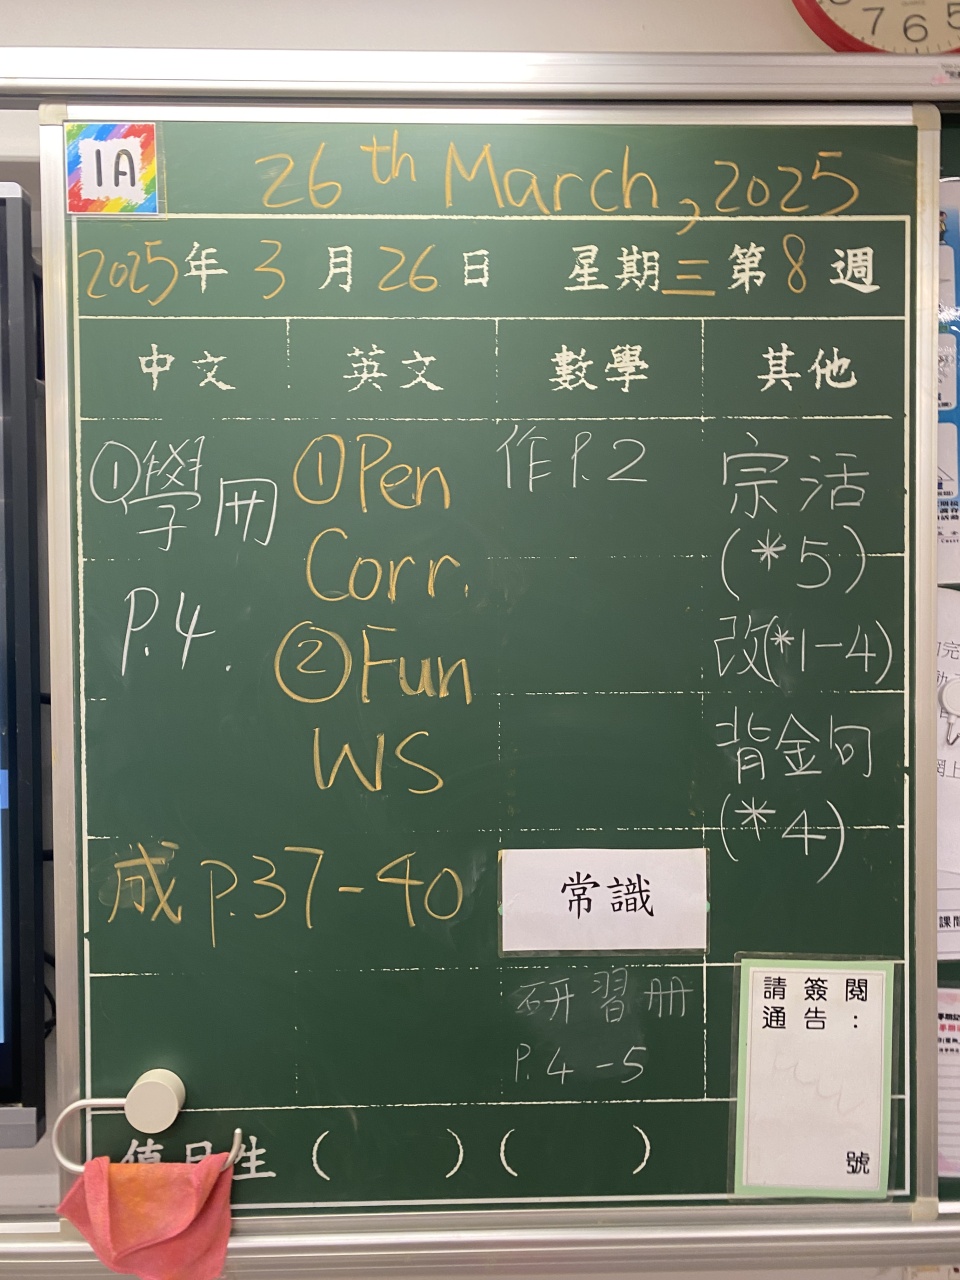 7 6 5
1A
26th March, 2025
2025年3月26日 星期三 第8週
中文 英文 數學 其他
①學冊
P.4.
①Pen
Corr.
②Fun
WS
作P.2
宗活
(*5)
改(*1-4)
背金句
(*4)
成 P.37-40
常識
研習冊
P.4-5
請簽閱
通告：
號
值日生 ( ) ( )